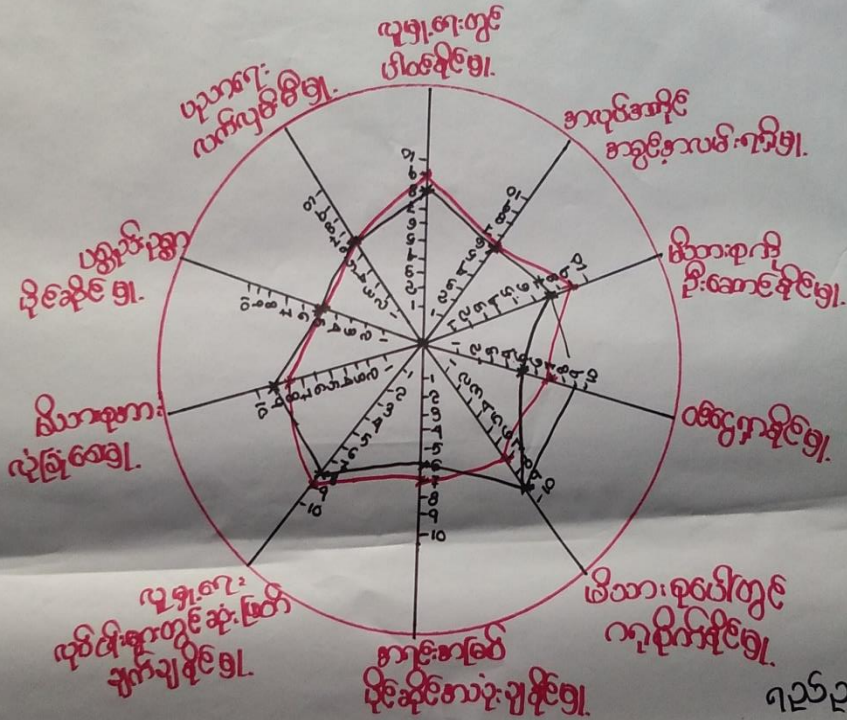 လူမှုရေးတွင်
ပါဝင်နိုင်မှု.
အလုပ်အကိုင်
အခွင့်အလမ်းရရှိမှု.
မိသားစုကို
ဦးဆောင်နိုင်မှု.
ဝင်ငွေရှာနိုင်မှု.
မိသားစုပေါ်တွင်
ဂရုစိုက်နိုင်မှု.
အရင်းအမြစ်
ပိုင်ဆိုင်အသုံးချနိုင်မှု.
လူမှုရေး
လုပ်ငန်းများတွင်ဆုံးဖြတ်
ချက်ချနိုင်မှု.
မိသားစုအား
လုံခြုံစေမှု.
ပစ္စည်းဥစ္စာ
ပိုင်ဆိုင်မှု.
ပညာရေး
လက်လှမ်းမီမှု.
1
2
3
4
5
6
7
8
9
10